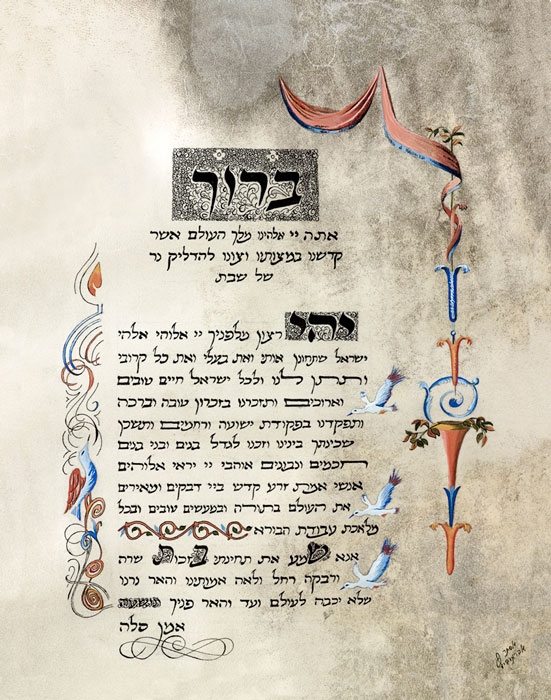 ברוך
אתה יי אלהינו מלך העולם אשר
קדשנו במצותו וצונו להדליק נר
של שבת
יהי רצון מלפניך יי אלוהי אלהי
ישראל שתחונן אותי ואת בעלי ואת כל קרובי
ותתן לנו ולכל ישראל חיים טובים
וארוכים ותזכרנו בזכרון טובה וברכה
ותפקדנו בפקודת ישועה ורחמים ותשכן
שכינתך בינינו וזכנו לגדל בנים ובני בנים
חכמים ונבונים אוהבי יי יראי אלוהים
אנשי אמת זרע קדש ביי דבקים ומאירים
את העולם בתורה ובמעשים טובים ובכל
מלאכת עבודת הבורא
אנא שמע את תחינתי בזכות שרה
ורבקה רחל ולאה אמותינו והאר נרנו
שלא יכבה לעולם ועד והאר פניך ונושעה
אמן סלה